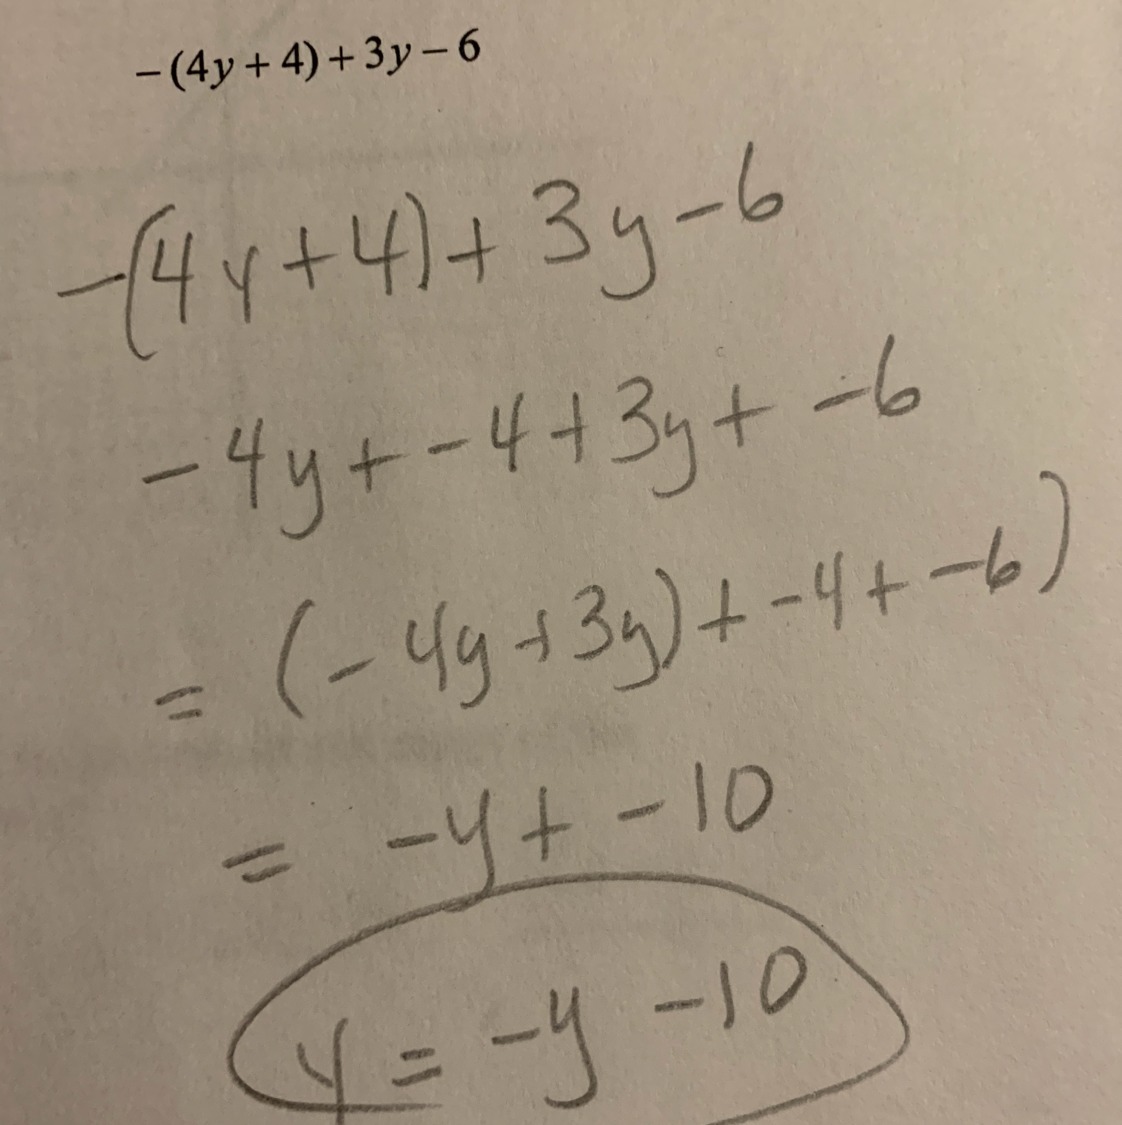 −(4y+4)+3y−6
-(4y+4)+3y-6
-4y+-4+3y+-6
=(-4y+3y)+-4+-6)
=-y+-10
y=-y-10